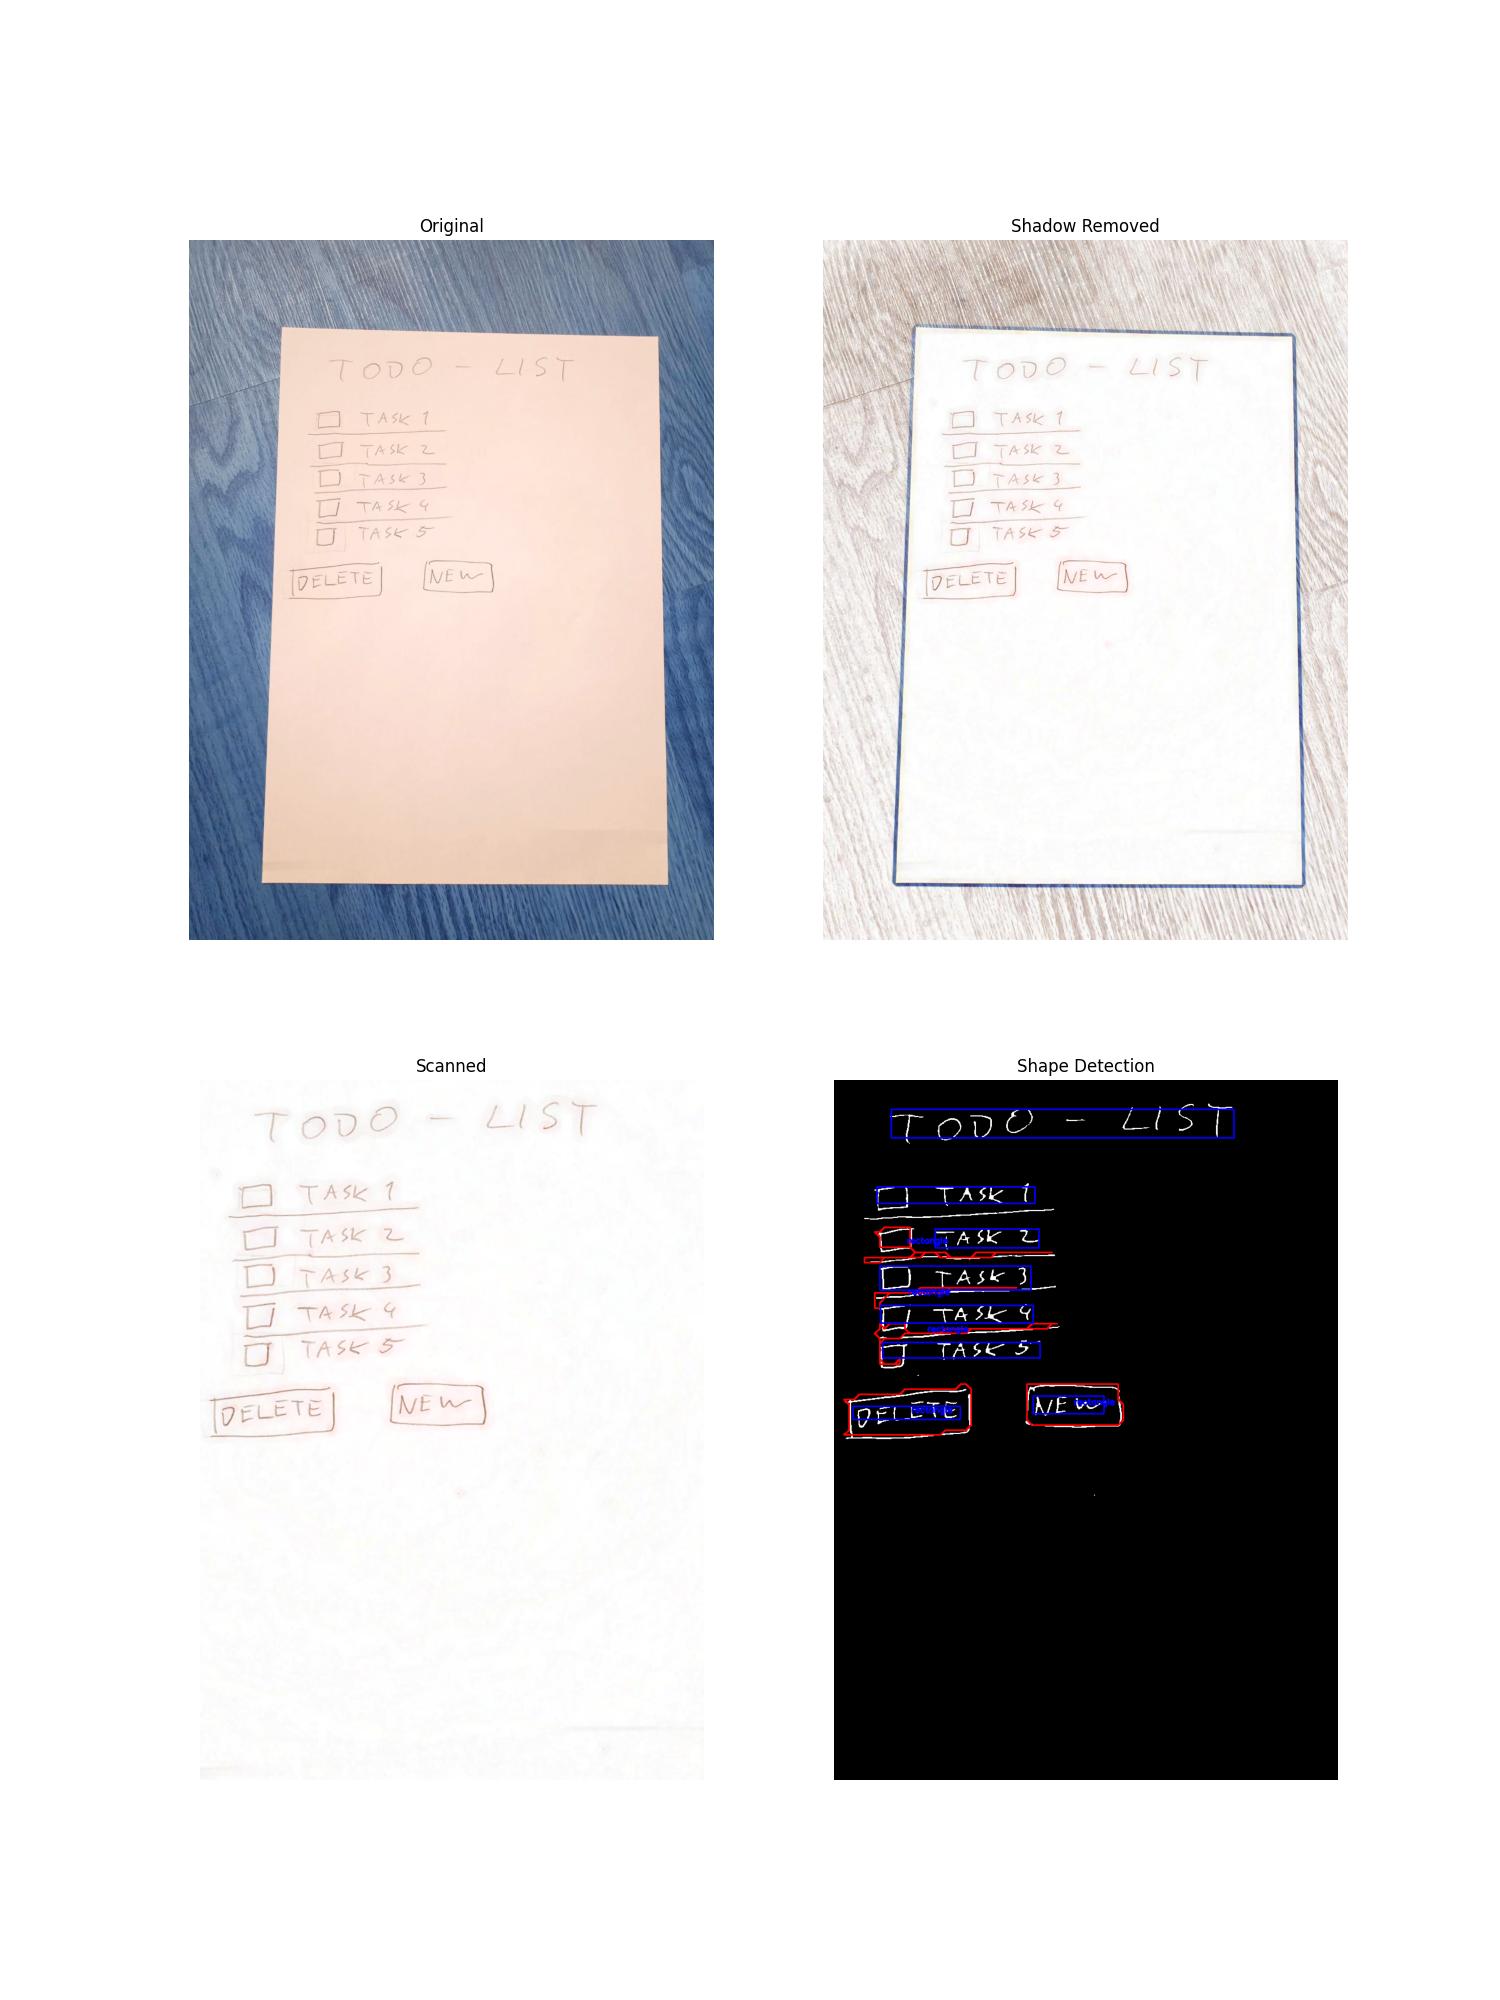 Original
TODO - LIST
TASK 1
TASK 2
TASK 3
TASK 4
TASK 5
DELETE NEW
Shadow Removed
TODO - LIST
TASK 1
TASK 2
TASK 3
TASK 4
TASK 5
DELETE NEW
Scanned
TODO - LIST
TASK 1
TASK 2
TASK 3
TASK 4
TASK 5
DELETE NEW
Shape Detection
TODO - LIST
TASK 1
rectangle TASK 2
TASK 3
rectangle
TASK 4
rectangle
TASK 5
DELETE NEW